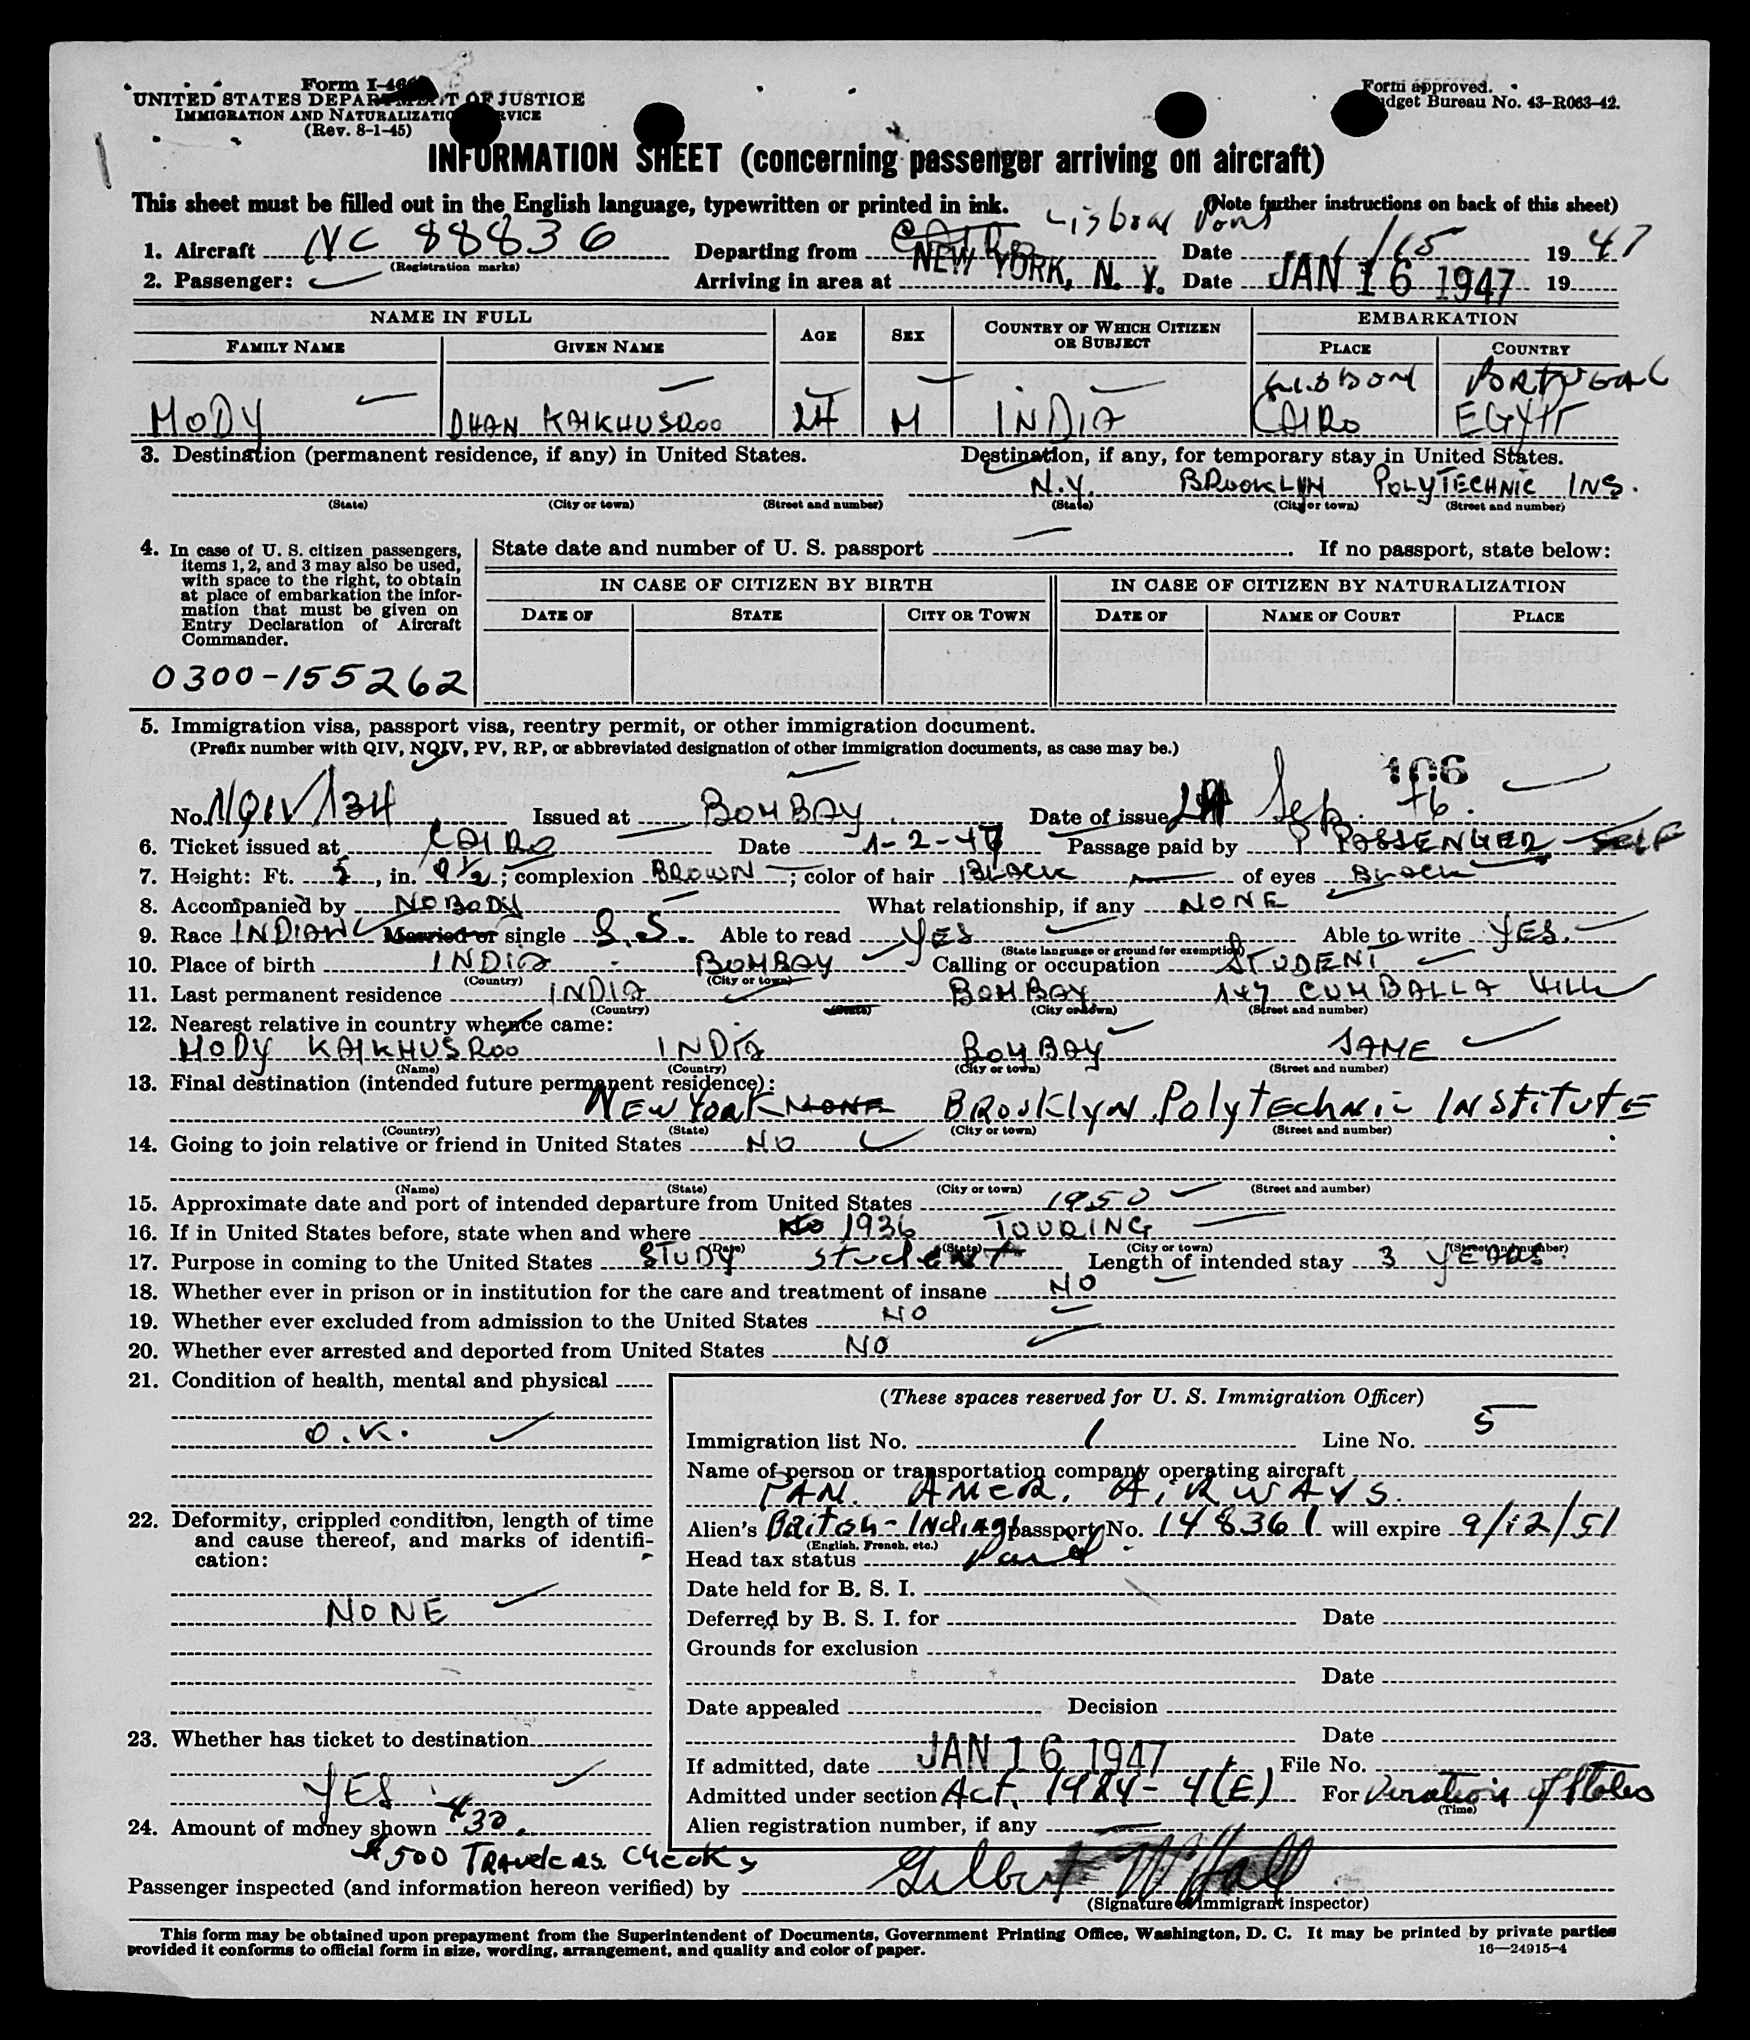 Form I-466
UNITED STATES DEPARTMENT OF JUSTICE
IMMIGRATION AND NATURALIZATION SERVICE
(Rev. 8-1-45)
Form approved.
Budget Bureau No. 43-R063-42.
INFORMATION SHEET (concerning passenger arriving on aircraft)
This sheet must be filled out in the English language, typewritten or printed in ink. (Note further instructions on back of this sheet)
1. Aircraft NC 88836 Departing from Lisboa Date 1/15 1947
(Registration marks)
2. Passenger: Arriving in area at NEW YORK, N. Y. Date JAN 16 1947 19
NAME IN FULL AGE SEX COUNTRY OF WHICH CITIZEN OR SUBJECT EMBARKATION
FAMILY NAME GIVEN NAME PLACE COUNTRY
LISBON PORTUGAL
MODY DHAN KAIKHUSROO 24 M INDIA CAIRO EGYPT
3. Destination (permanent residence, if any) in United States. Destination, if any, for temporary stay in United States.
N.Y. BROOKLYN POLYTECHNIC INS.
(State) (City or town) (Street and number) (State) (City or town) (Street and number)
4. In case of U. S. citizen passengers, items 1, 2, and 3 may also be used, with space to the right, to obtain at place of embarkation the information that must be given on Entry Declaration of Aircraft Commander.
State date and number of U. S. passport . If no passport, state below:
IN CASE OF CITIZEN BY BIRTH IN CASE OF CITIZEN BY NATURALIZATION
DATE OF STATE CITY OR TOWN DATE OF NAME OF COURT PLACE
0300-155262
5. Immigration visa, passport visa, reentry permit, or other immigration document.
(Prefix number with QIV, NQIV, PV, RP, or abbreviated designation of other immigration documents, as case may be.)
106
No. NQIV 134 Issued at BOMBAY Date of issue 24 Sep. 46.
6. Ticket issued at CAIRO Date 1-2-47 Passage paid by PASSENGER SELF
7. Height: Ft. 5, in. 9½; complexion BROWN; color of hair BLACK of eyes BLACK
8. Accompanied by NOBODY What relationship, if any NONE
9. Race INDIAN Married or single S. Able to read YES Able to write YES.
(State language or ground for exemption)
10. Place of birth INDIA BOMBAY Calling or occupation STUDENT
(Country) (City or town)
11. Last permanent residence INDIA BOMBAY 147 CUMBALLA HILL
(Country) (State) (City or town) (Street and number)
12. Nearest relative in country whence came:
MODY KAIKHUSROO INDIA BOMBAY SAME
(Name) (Country) (City or town) (Street and number)
13. Final destination (intended future permanent residence):
NEW YORK NONE BROOKLYN POLYTECHNIC INSTITUTE
(Country) (State) (City or town) (Street and number)
14. Going to join relative or friend in United States NO
(Name) (State) (City or town) (Street and number)
15. Approximate date and port of intended departure from United States 1950
16. If in United States before, state when and where NO 1936 TOURING
(Date) (State) (City or town) (Street and number)
17. Purpose in coming to the United States STUDY student Length of intended stay 3 YEARS.
18. Whether ever in prison or in institution for the care and treatment of insane NO
19. Whether ever excluded from admission to the United States NO
20. Whether ever arrested and deported from United States NO
21. Condition of health, mental and physical
O.K.
22. Deformity, crippled condition, length of time and cause thereof, and marks of identification:
NONE
23. Whether has ticket to destination
YES
24. Amount of money shown $30.
$500 TRAVELERS CHECKS
(These spaces reserved for U. S. Immigration Officer)
Immigration list No. 1 Line No. 5
Name of person or transportation company operating aircraft
PAN. AMER. AIRWAYS.
Alien's British-Indian passport No. 148361 will expire 9/12/51
(English, French, etc.)
Head tax status Paid
Date held for B. S. I.
Deferred by B. S. I. for Date
Grounds for exclusion
Date
Date appealed Decision
Date
If admitted, date JAN 16 1947 File No.
Admitted under section Act. 1924-4(E) For Duration of Status
(Time)
Alien registration number, if any
Passenger inspected (and information hereon verified) by Gilbert W Hall
(Signature of immigrant inspector)
This form may be obtained upon prepayment from the Superintendent of Documents, Government Printing Office, Washington, D. C. It may be printed by private parties
provided it conforms to official form in size, wording, arrangement, and quality and color of paper. 16—24915-4